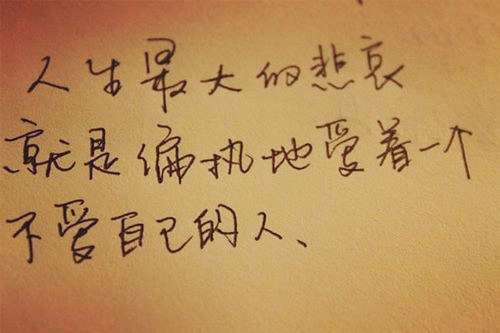 人生最大的悲哀
就是偏执地爱着一个
不爱自己的人、